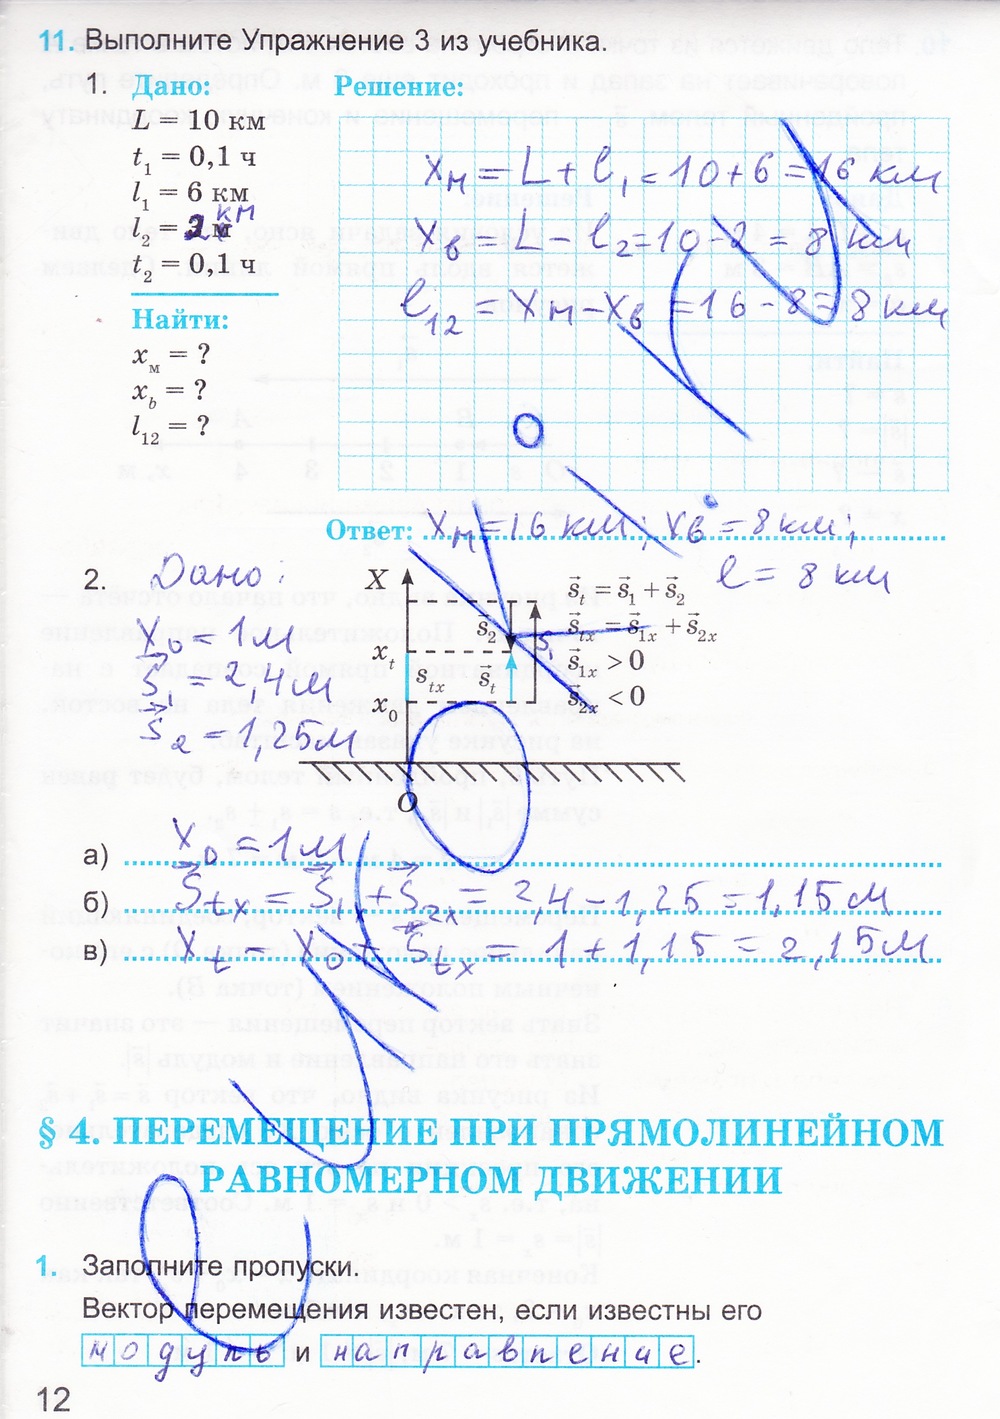 11. Выполните Упражнение 3 из учебника.
1. Дано: Решение:
L = 10 км
t₁ = 0,1 ч
l₁ = 6 км
l₂ = 2 км
t₂ = 0,1 ч
Найти:
xм = ?
x_b = ?
l₁₂ = ?
Xм = L + l₁ = 10+6 = 16 км
Xв = L - l₂ = 10-2 = 8 км
l₁₂ = Xм - Xв = 16 - 8 = 8 км
Ответ: Xм = 16 км; Xв = 8 км;
l = 8 км
2. Дано:
X₀ = 1м
S⃗₁ = 2,4м
S⃗₂ = 1,25м
X
x_t
x₀
s_tx
s⃗₂
s⃗_t
O
s⃗_t = s⃗₁ + s⃗₂
s⃗_tx = s⃗₁x + s⃗₂x
s⃗₁x > 0
s⃗₂x < 0
а) X₀ = 1м
б) S⃗tx = S⃗₁x + S⃗₂x = 2,4 - 1,25 = 1,15м
в) Xt = X₀ + S⃗tx = 1 + 1,15 = 2,15м
§ 4. ПЕРЕМЕЩЕНИЕ ПРИ ПРЯМОЛИНЕЙНОМ
РАВНОМЕРНОМ ДВИЖЕНИИ
1. Заполните пропуски.
Вектор перемещения известен, если известны его
модуль и направление.
12